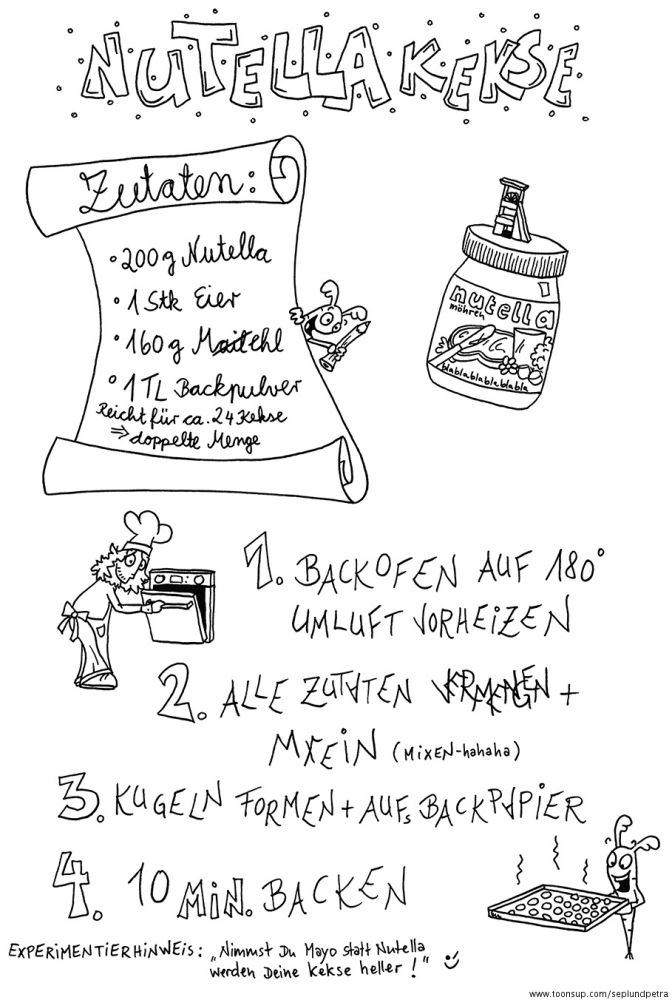 NUTELLA KEKSE
Zutaten:
• 200g Nutella
• 1 Stk Eier
• 160g Mehl
• 1 TL Backpulver
Reicht für ca. 24 Kekse
⇒ doppelte Menge
nutella
möhren
blablablablablabla
1. BACKOFEN AUF 180°
UMLUFT VORHEIZEN
2. ALLE ZUTATEN VERMENGEN +
MXEIN (MIXEN-hahaha)
3. KUGELN FORMEN + AUFs BACKPAPIER
4. 10 MIN. BACKEN
EXPERIMENTIERHINWEIS: „Nimmst Du Mayo statt Nutella
werden Deine Kekse heller!"
www.toonsup.com/seplundpetra